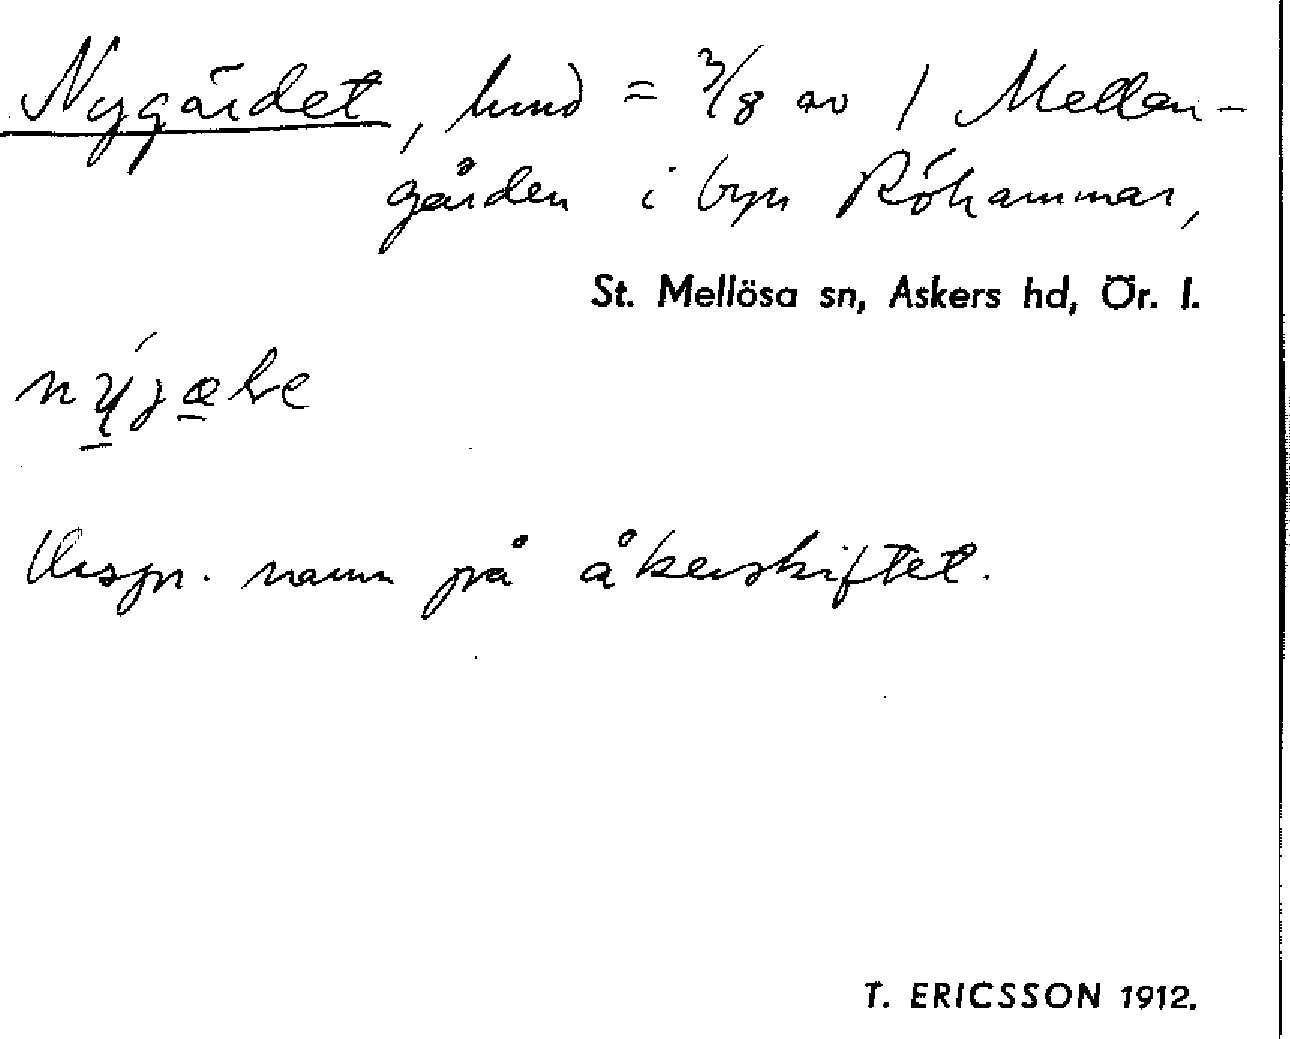 Nygärdet, hmd = 3/8 av 1 Mellan-
gården i byn Röhammar,
St. Mellösa sn, Askers hd, Ör. l.
Urspr. namn på åkerskiftet.
T. ERICSSON 1912.